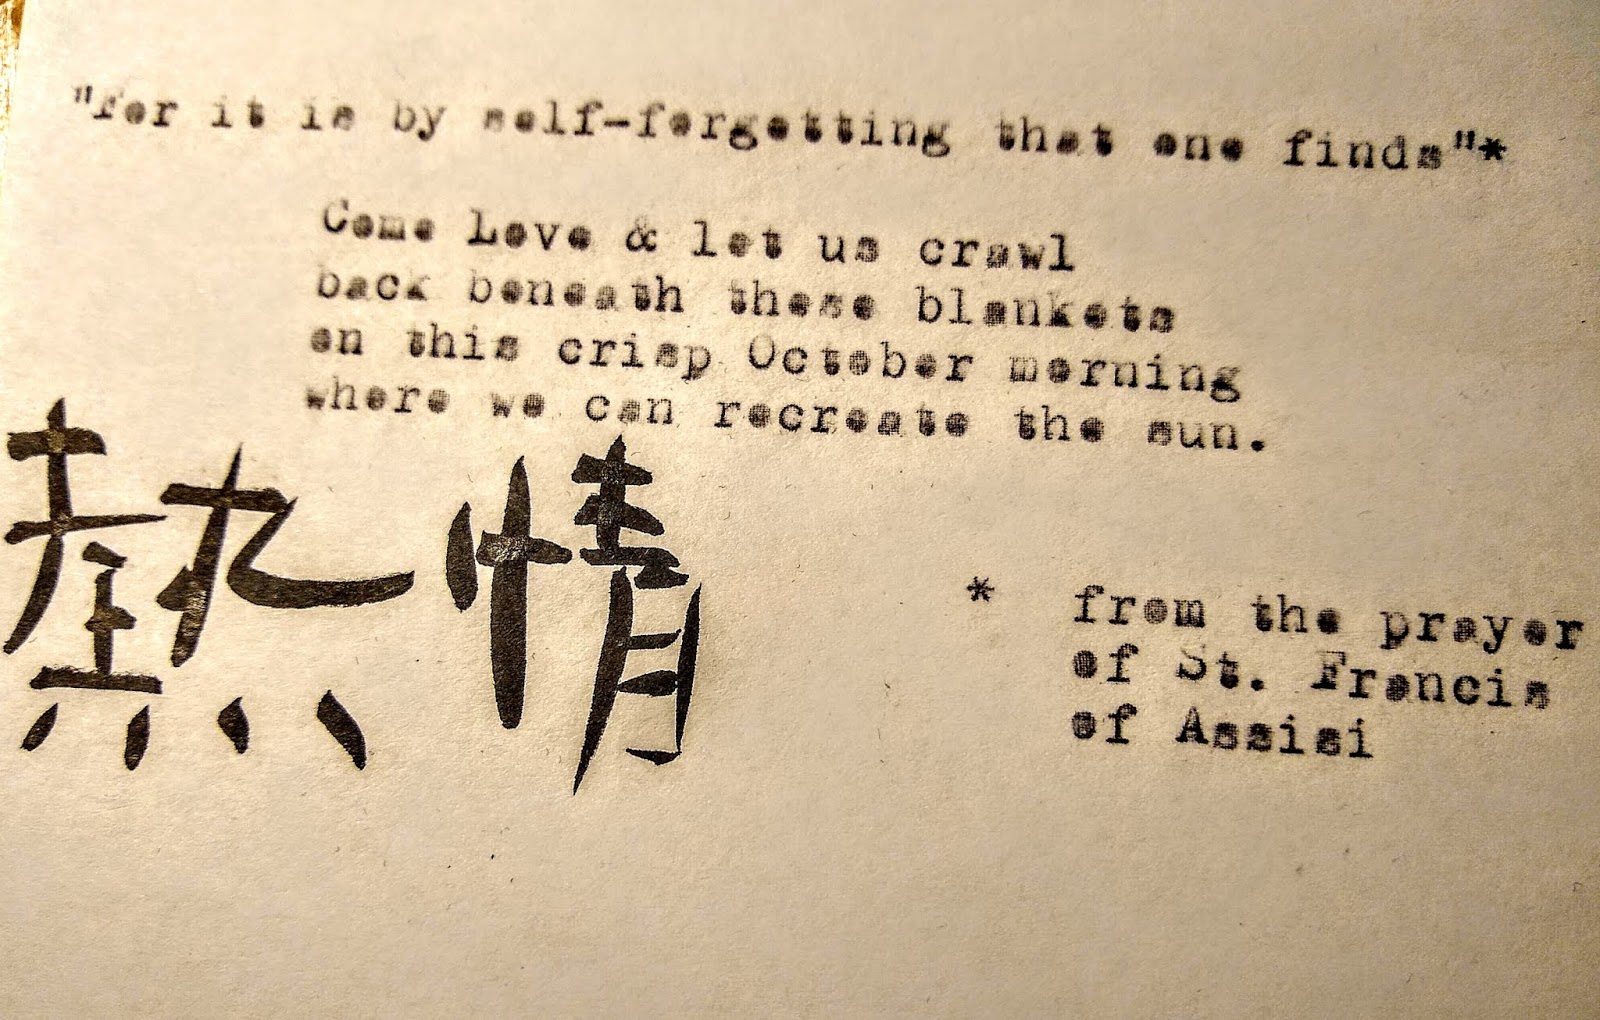 "For it is by self-forgetting that one finds"*
Come Love & let us crawl
back beneath these blankets
on this crisp October morning
where we can recreate the sun.
熱情
* from the prayer
of St. Francis
of Assisi